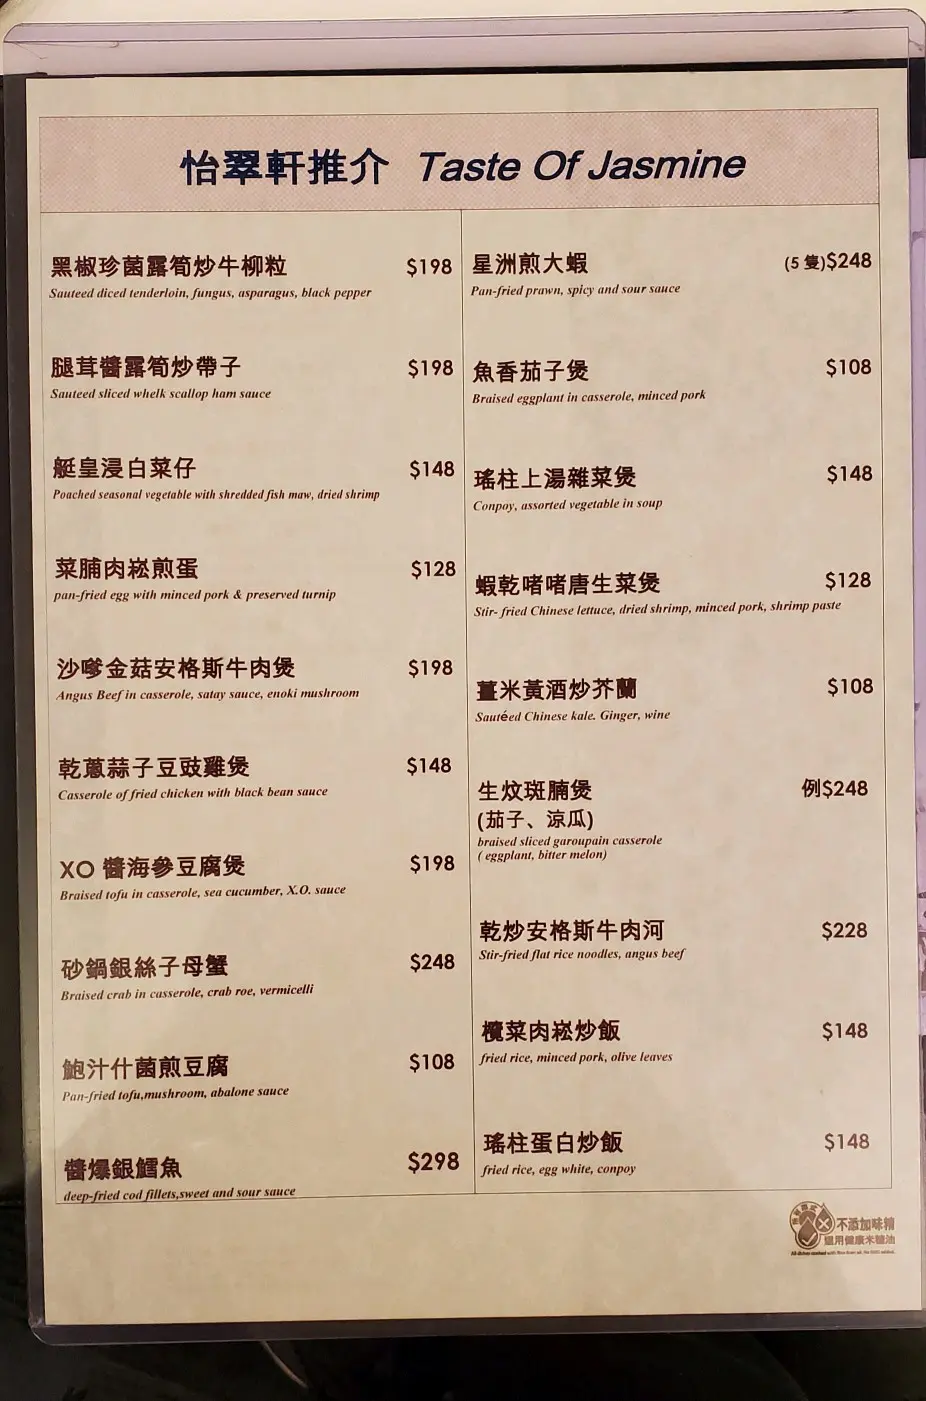 怡翠軒推介 Taste Of Jasmine
黑椒珍菌露筍炒牛柳粒 $198
Sauteed diced tenderloin, fungus, asparagus, black pepper
腿茸醬露筍炒帶子 $198
Sauteed sliced whelk scallop ham sauce
艇皇浸白菜仔 $148
Poached seasonal vegetable with shredded fish maw, dried shrimp
菜脯肉崧煎蛋 $128
pan-fried egg with minced pork & preserved turnip
沙嗲金菇安格斯牛肉煲 $198
Angus Beef in casserole, satay sauce, enoki mushroom
乾蔥蒜子豆豉雞煲 $148
Casserole of fried chicken with black bean sauce
XO 醬海參豆腐煲 $198
Braised tofu in casserole, sea cucumber, X.O. sauce
砂鍋銀絲子母蟹 $248
Braised crab in casserole, crab roe, vermicelli
鮑汁什菌煎豆腐 $108
Pan-fried tofu,mushroom, abalone sauce
醬爆銀鱈魚 $298
deep-fried cod fillets,sweet and sour sauce
星洲煎大蝦 (5 隻)$248
Pan-fried prawn, spicy and sour sauce
魚香茄子煲 $108
Braised eggplant in casserole, minced pork
瑤柱上湯雜菜煲 $148
Conpoy, assorted vegetable in soup
蝦乾啫啫唐生菜煲 $128
Stir- fried Chinese lettuce, dried shrimp, minced pork, shrimp paste
薑米黃酒炒芥蘭 $108
Sautéed Chinese kale. Ginger, wine
生炆斑腩煲 例$248
(茄子、涼瓜)
braised sliced garoupain casserole
( eggplant, bitter melon)
乾炒安格斯牛肉河 $228
Stir-fried flat rice noodles, angus beef
欖菜肉崧炒飯 $148
fried rice, minced pork, olive leaves
瑤柱蛋白炒飯 $148
fried rice, egg white, conpoy
不添加味精
選用健康米糠油